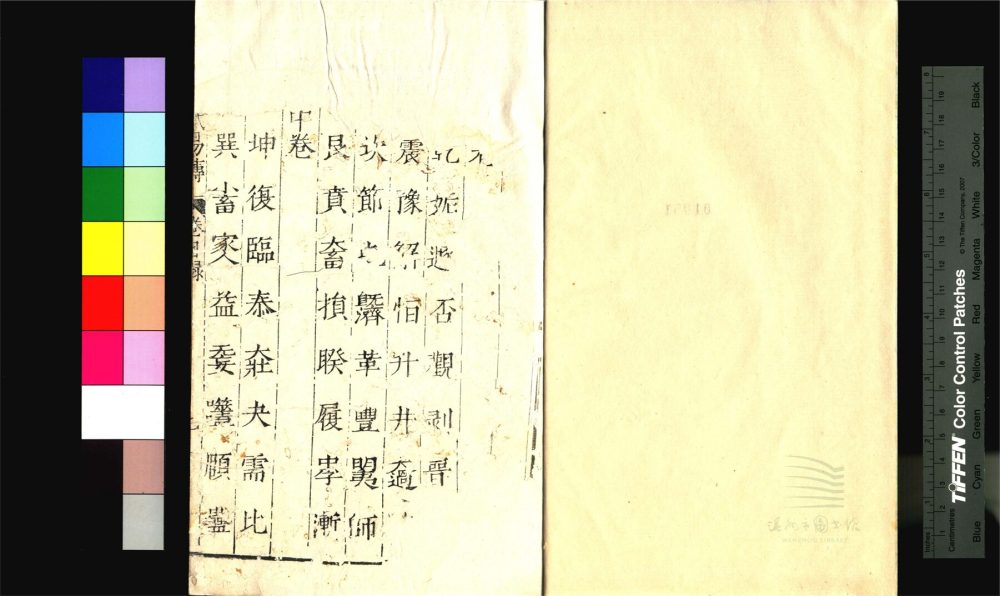 姤遯否觀剝晉
震豫解恒升井大過
坎節屯既濟革豐明夷師
艮賁大畜損睽履中孚漸
中卷
坤復臨泰大壯夬需比
巽小畜家人益无妄噬嗑頤蠱
易傳 卷目録
温州市图书馆
WENZHOU LIBRARY
TIFFEN Color Control Patches
© The Tiffen Company, 2007
Blue Cyan Green Yellow Red Magenta White 3/Color Black
Inches 1 2 3 4 5 6 7 8
Centimetres 1 2 3 4 5 6 7 8 9 10 11 12 13 14 15 16 17 18 19